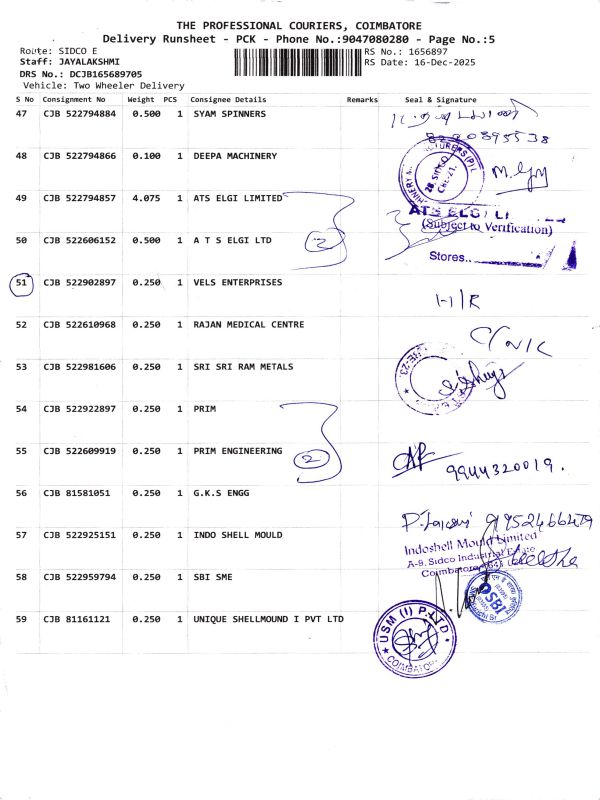 THE PROFESSIONAL COURIERS, COIMBATORE
Delivery Runsheet - PCK - Phone No.:9047080280 - Page No.:5
Route: SIDCO E
RS No.: 1656897
Staff: JAYALAKSHMI
RS Date: 16-Dec-2025
DRS No.: DCJB165689705
Vehicle: Two Wheeler Delivery
S No Consignment No Weight PCS Consignee Details Remarks Seal & Signature
47 CJB 522794884 0.500 1 SYAM SPINNERS
48 CJB 522794866 0.100 1 DEEPA MACHINERY
28 SIDCO
CBE-21.
49 CJB 522794857 4.075 1 ATS ELGI LIMITED
ATS ELGI LI
(Subject to Verification)
50 CJB 522606152 0.500 1 A T S ELGI LTD 2
Stores..
51 CJB 522902897 0.250 1 VELS ENTERPRISES
52 CJB 522610968 0.250 1 RAJAN MEDICAL CENTRE
53 CJB 522981606 0.250 1 SRI SRI RAM METALS
54 CJB 522922897 0.250 1 PRIM
55 CJB 522609919 0.250 1 PRIM ENGINEERING 2
9944320019.
56 CJB 81581051 0.250 1 G.K.S ENGG
57 CJB 522925151 0.250 1 INDO SHELL MOULD
Indoshell Mould Limited
A-9, Sidco Industrial Estate
Coimbatore
58 CJB 522959794 0.250 1 SBI SME
SBI
59 CJB 81161121 0.250 1 UNIQUE SHELLMOUND I PVT LTD
USM (I) P LTD
COIMBATORE